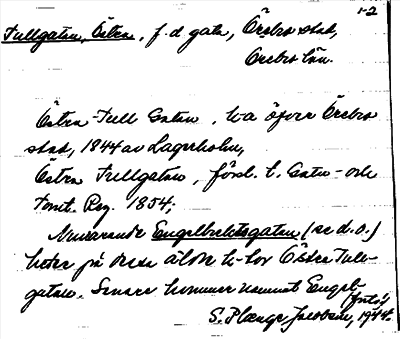 1-2
Tullgatan, Östra, f.d. gata, Örebro stad,
Örebro län.
Östra Tull Gatan, k-a öfver Örebro
stad, 1844 av Lagerholm,
Östra Tullgatan, förl. t. Gatu- och
Tomt. Reg. 1854;
Nuvarande Engelbrektsgatan (se d.o.)
heter på dessa äldre k-or Östra Tull-
gatan. Senare kommer namnet Engel-
S. Plænge Jacobson, 1944.